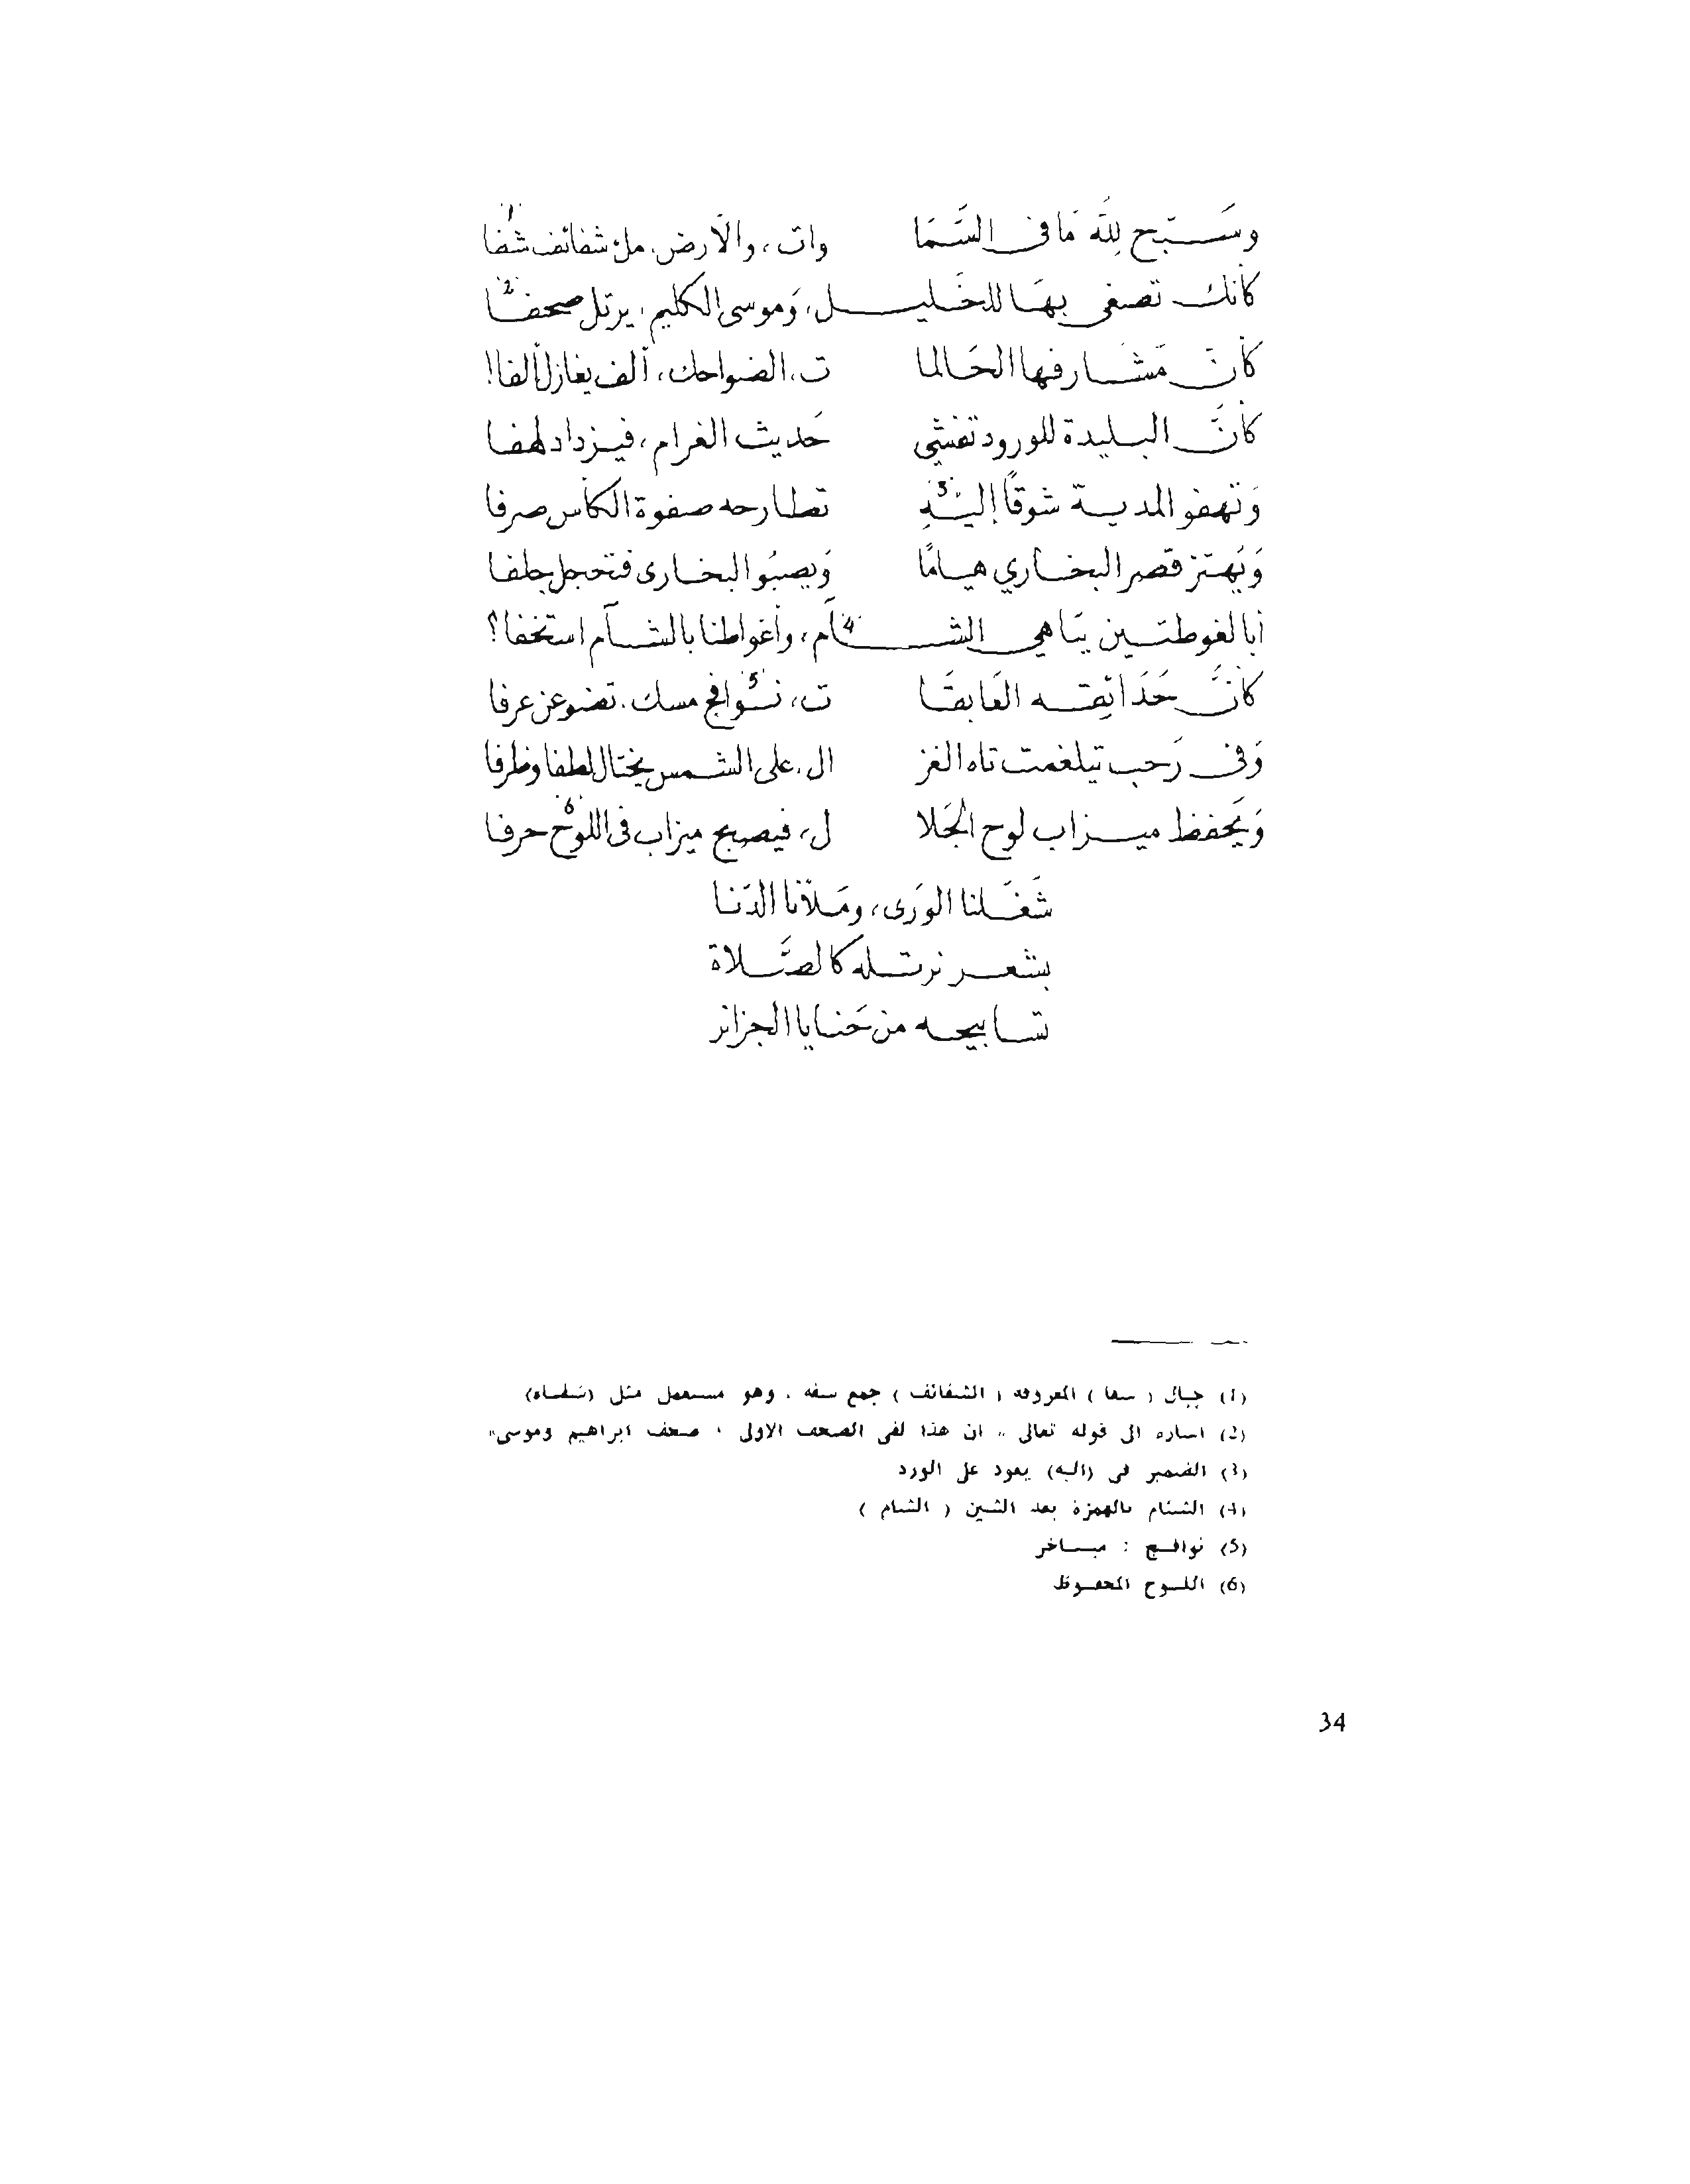 وسَبّح لِلَّه مَا في السَّمَا وات، والأرض، ملء شفائف شفا (1)
كأنك تصغى بهَا للخَليل، وَموسى الكليم، يرتل صحفا (2)
كأنّ مَشَارفها الحَالما ت، الضواحك، ألف يغازل ألفا!
كأنَّ البليدة للورود تفشى حَديث الغرام، فيزداد لهفا
وَتهفو المدية شوقًا إليْهِ (3) تطارحه صفوة الكأس صرفا
وَيَهتز قصر البخاري هيامًا وَيصبُو البخارى فتحجل جلفا
أبالغوطتين يبَاهي الشآم (4)، وأغواطنا بالشآم استخفا؟
كأنَّ حَدَائقه العَابقَا ت، نوافج (5) مسك، تضوعن عرفا
وَفي رَحب تيلغمت تاه الغز ال، على الشمس يختال لطفا وظرفا
وَيَحفظ ميزاب لوح الجَلا ل، فيصبح ميزاب في اللوح (6) حرفا
شَغَلنا الوَرَى، ومَلأنا الدّنا
بشعر نرتله كالصَّلاة
تسابيحه من حَنايا الجزائر
(1) جبال ( شفا ) المعروفة ( الشفائف ) جمع شفة . وهو مستعمل مثل (شفاه)
(2) اشارة الى قوله تعالى " ان هذا لفى الصحف الاولى ، صحف ابراهيم وموسى"
(3) الضمير فى (اليه) يعود على الورد
(4) الشئام بالهمزة بعد الشين ( الشام )
(5) نوافج : مباخر
(6) اللوح المحفوظ
34